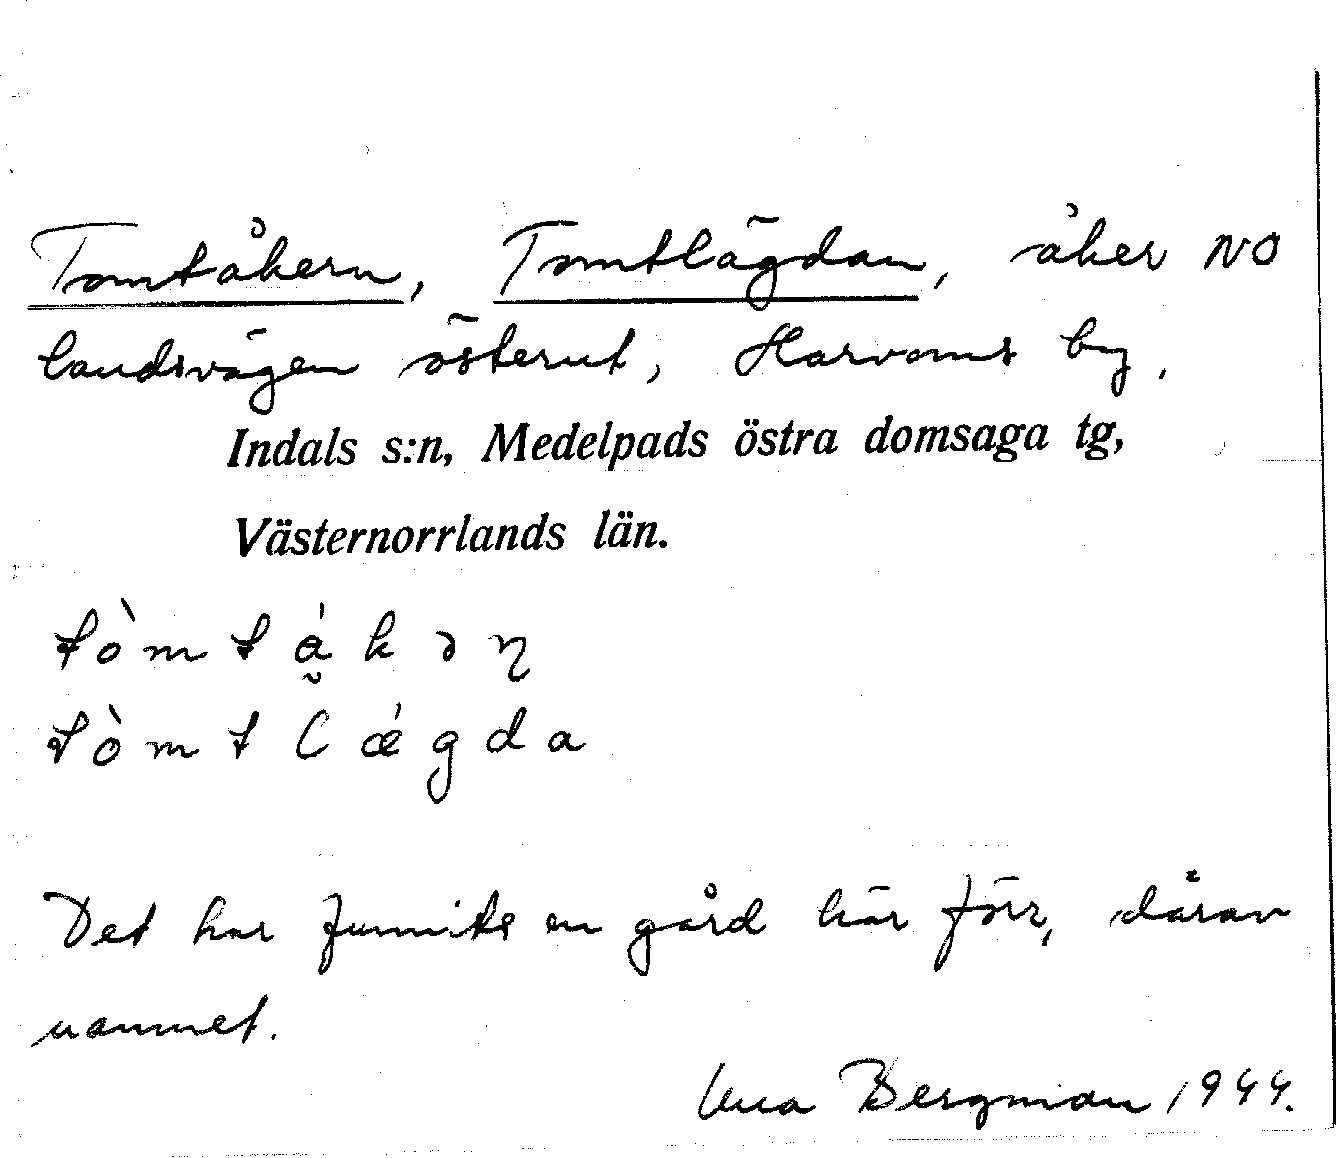 Tomtåkern, Tomtlägdan, åker NO
landsvägen österut, Harvoms by.
Indals s:n, Medelpads östra domsaga tg,
Västernorrlands län.
tòmtá̰kəɳ
tòmtlǽgda
Det har funnits en gård här förr, därav
namnet.
Bergman 1944.